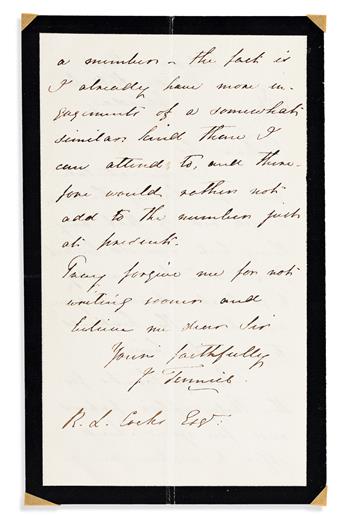 a member – the fact is
I already have more en-
gagements of a somewhat
similar kind than I
can attend to, and there-
fore would rather not
add to the number just
at present.
Pray forgive me for not
writing sooner and
believe me dear Sir
Yours faithfully
J. Tenniel.
R. L. Cocks Esqr.